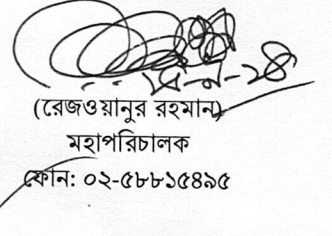 (রেজওয়ানুর রহমান)
মহাপরিচালক
ফোন: ০২-৫৮৮১৫৪৯৫